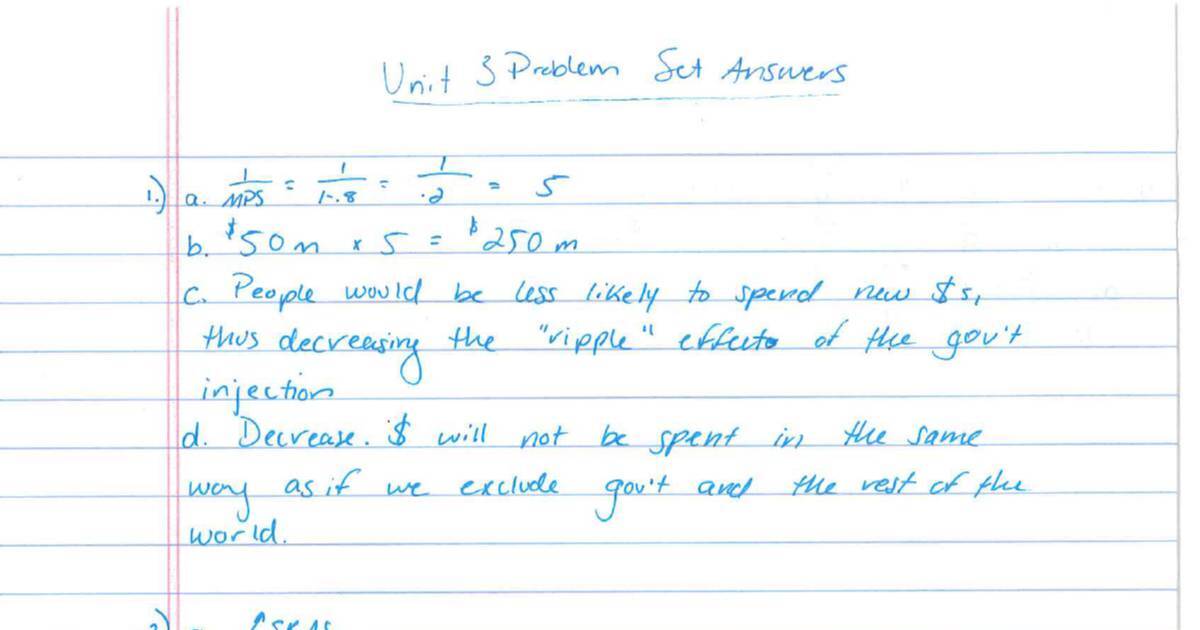 Unit 3 Problem Set Answers
1.) a. 1/MPS = 1/1-.8 = 1/.2 = 5
b. $50m x 5 = $250m
c. People would be less likely to spend new $s,
thus decreasing the "ripple" effects of the gov't
injection
d. Decrease. $ will not be spent in the same
way as if we exclude gov't and the rest of the
world.
2.)